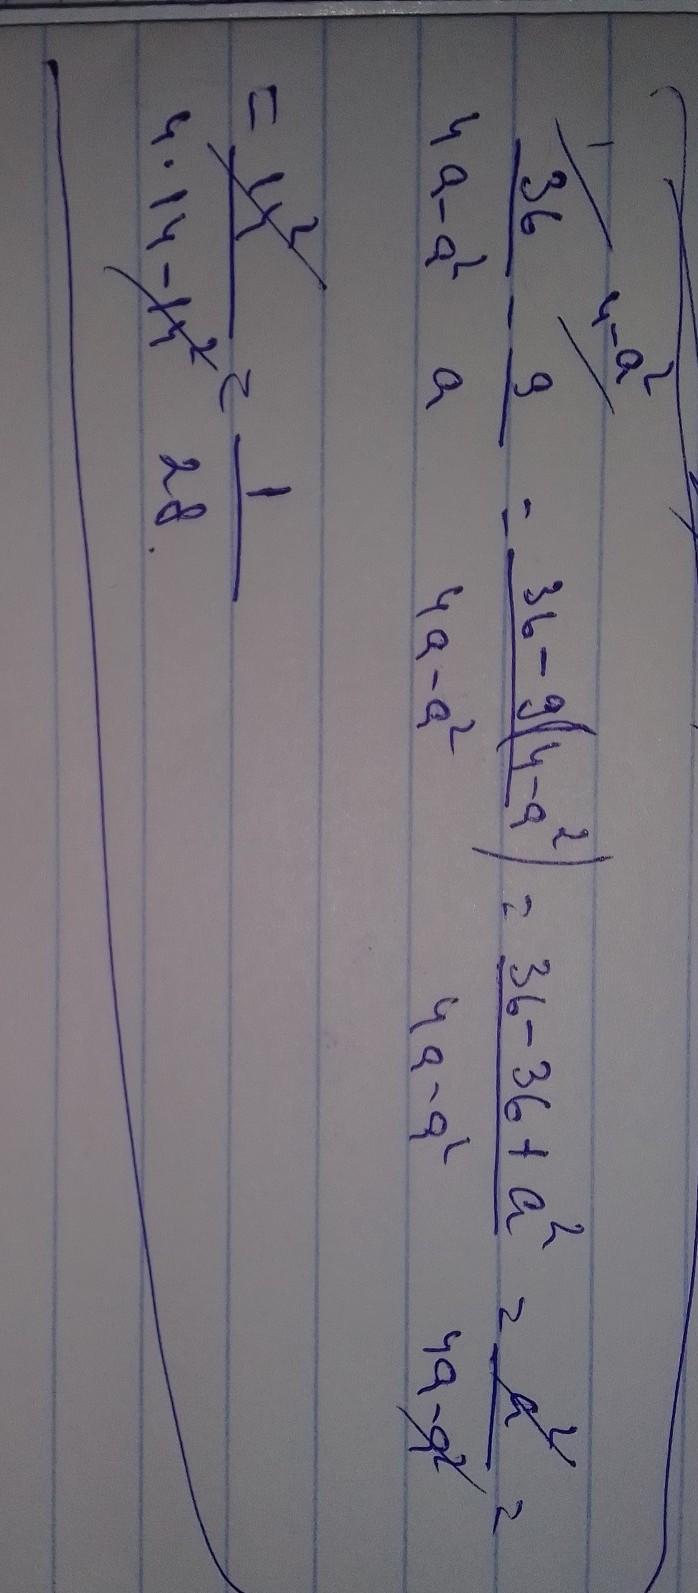 1/ 4-a²/
36/(4a-a²) - 9/a = (36-9(4-a²))/(4a-a²) = (36-36+a²)/(4a-a²) = a²/(4a-a²) =
= 14²/(4·14-14²) = 1/28